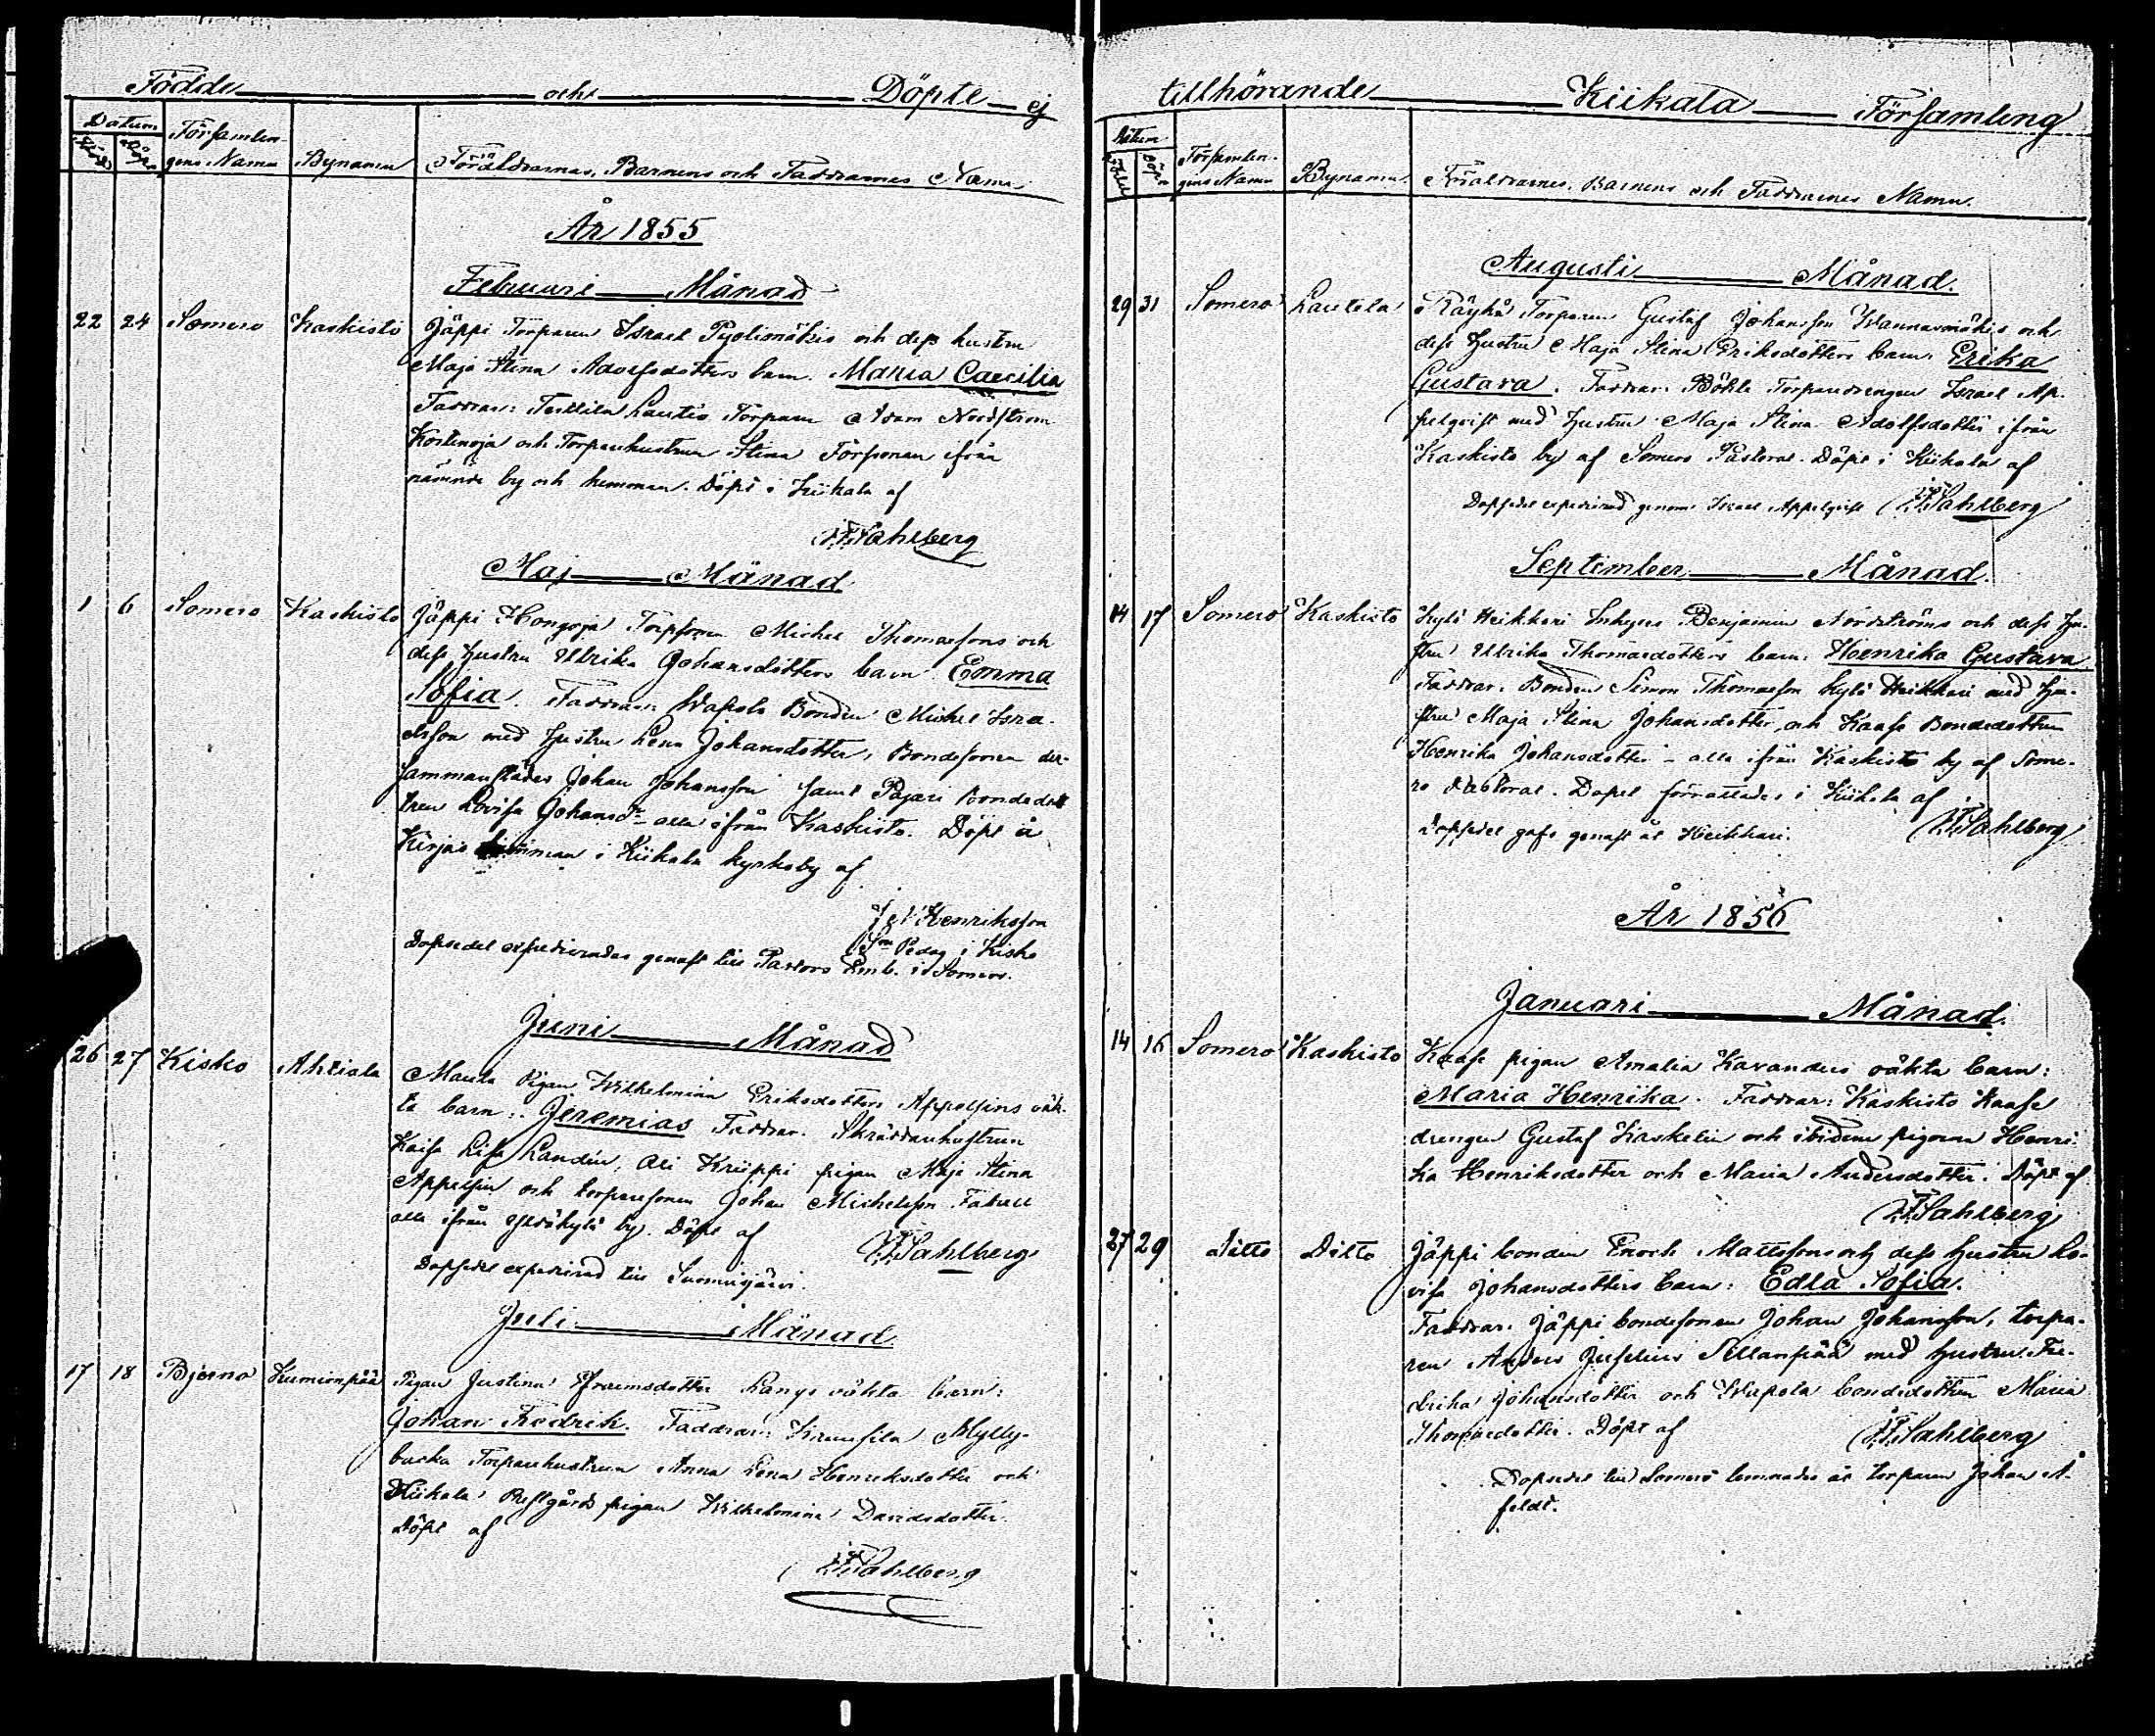 Födde och Döpte ej
Datum
Församlin-
gens Namn
Bynamn
Föräldrarnas, Barnens och Faddrarnes Namn
År 1855
Februari Månad
22 24 Somero Kaskisto Jäppi Torparen Israel Pyölimäkis och dess hustru
Maja Stina Adolfsdotters barn. Maria Caecilia
Faddrar: Terttilä Lautis Torparen Adam Nordström
Kostinoja och Torparhustrun Stina Törsonen ifrån
nämnde by och hemman. Döpt i Kiikala af
Sahlberg
Maj Månad
1 6 Somero Kaskisto Jäppi Hongoja Torpsonen Michel Thomassons och
dess hustru Ulrika Johansdotters barn Emma
Sofia. Faddrar: Wapola Bonden Michel Isra-
elsson med hustru Lena Johansdotter, Bondesonen der-
sammanstädes Johan Johansson samt Pajari bondedot
tren Lovisa Johansdr alla ifrån Kaskisto. Döpt å
Kirjas hemman i Kiikala kyrkoby af
Henriksson
Pedag. i Kisko
Dopsedel expedierades genast till Pastors Emb. i Somero.
Juni Månad
26 27 Kisko Ahtiala Maula Pigan Wilhelmina Eriksdotters Appelgins oäk-
ta barn: Jeremias Faddrar. Skräddarhustrun
Kaisa Lisa Landén, Ali Kriippi pigan Maja Stina
Appelgin och torparesonen Johan Michelsson
alla ifrån Yltäkylä by. Döpt af
Sahlberg
Dopsedel expedierad till Suomusjärvi.
Juli Månad
17 18 Bjerno Pigan Justina Efraimsdotter Langs oäkta barn:
Johan Fredrik. Faddrar: Mylly-
backa Torparhustrun Anna Lena Henriksdotter och
Kiikala Prestgårds pigan Wilhelmina Davidsdotter.
Döpt af
Sahlberg
tillhörande Kiikala Församling
Datum
Född
Döpt
Församlin-
gens Namn
Bynamn
Föräldrarnes, Barnens och Faddrarnes Namn.
Augusti Månad.
29 31 Somero Lautela Räyhä Torparen Gustaf Johansson Wannasmäkis och
dess hustru Maja Stina Eriksdotters barn. Erika
Gustava. Faddrar. Böhle Torparedrengen Israel Ap-
pelqvist med hustru Maja Stina Adolfsdotter ifrån
Kaskisto by af Somero Pastorat. Döpt i Kiikala af
Dopsedel expedierad genom Israel Appelqvist Sahlberg
September Månad.
14 17 Somero Kaskisto Kylä Heikkari Inhyses Benjamin Nordströms och dess hu-
stru Ulrika Thomasdotters barn. Henrika Gustava
Faddrar. Bonden Simon Thomasson Kylä Heikkari med hu-
stru Maja Stina Johansdotter, och Kaase Bondedottren
Henrika Johansdotter - alla ifrån Kaskisto by af Some-
ro Pastorat. Dopet förrättades i Kiikala af
Dopsedel gafs genast åt Heikkari. Sahlberg
År 1856
Januari Månad.
14 16 Somero Kaskisto Kaase pigan Amalia Kavanders oäkta barn:
Maria Henrika. Faddrar: Kaskisto Kaase
drengen Gustaf Kaskelin och ibidem pigorna Henri-
ka Henriksdotter och Maria Andersdotter. Döpt af
Sahlberg
27 29 Ditto Ditto Jäppi bonden Enoch Mattssons och dess hustru Lo-
visa Johansdotters barn: Edla Sofia.
Faddrar. Jäppi bondesonen Johan Johansson, torpa-
ren Anders Juselius Sillanpää med hustru Fre-
drika Johansdotter och Wapola bondedottren Maria
Thomasdotter. Döpt af Sahlberg
Dopsedel till Somero lemnades åt torparen Johan A-
feldt.